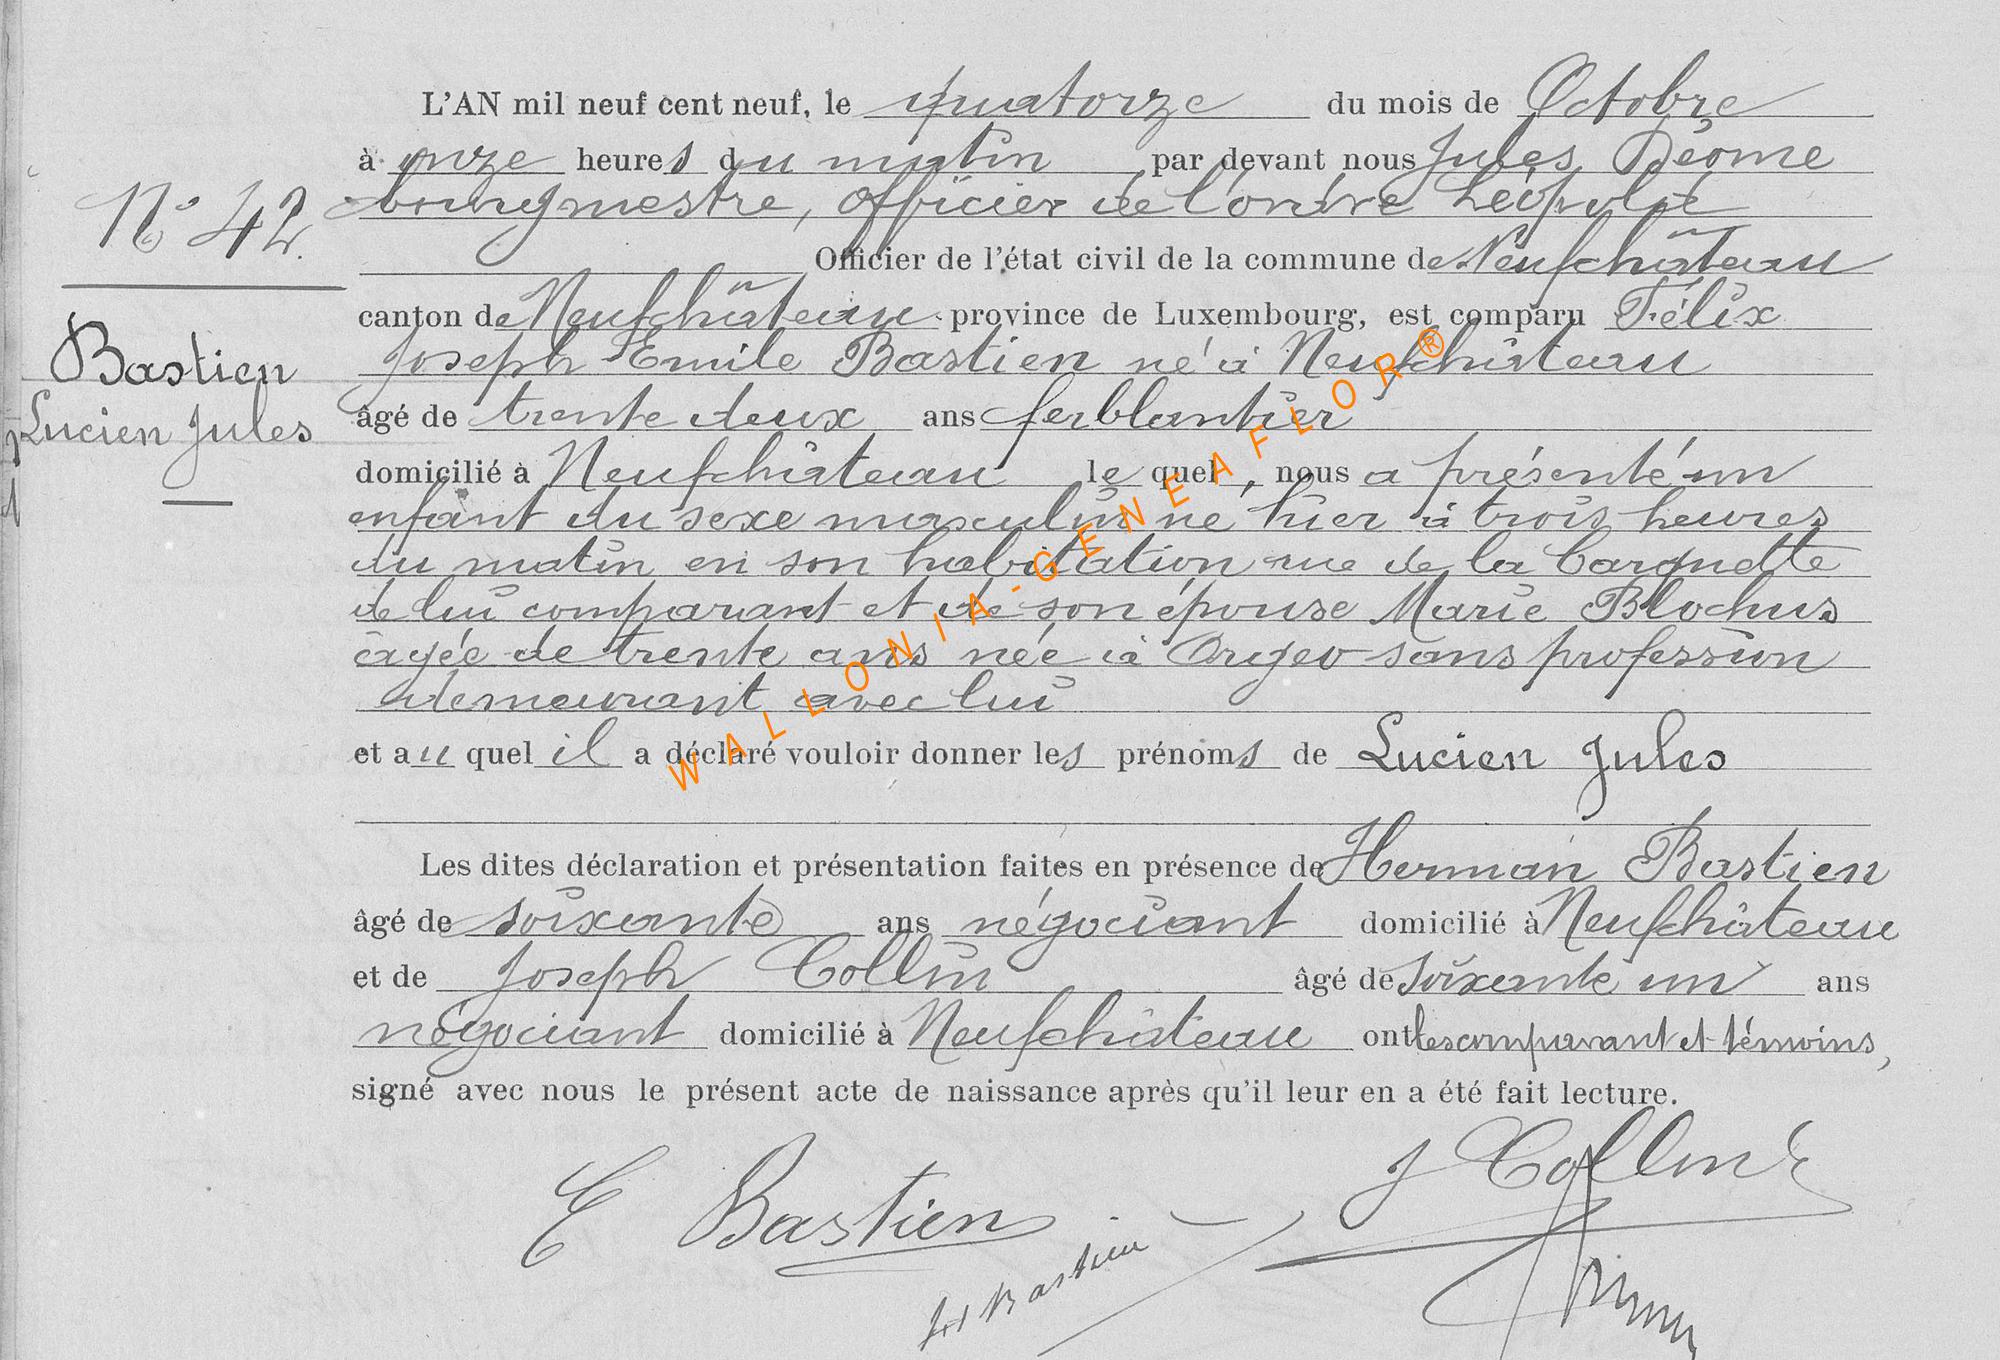 L'AN mil neuf cent neuf, le quatorze du mois de Octobre
à onze heures du matin par devant nous Jules Déome
bourgmestre, Officier de l'ordre Léopold
N° 42.
Officier de l'état civil de la commune de Neufchâteau
canton de Neufchâteau province de Luxembourg, est comparu Félix
Bastien
Joseph Emile Bastien né à Neufchâteau
Lucien Jules
âgé de trente deux ans ferblantier
domicilié à Neufchâteau le quel, nous a présenté un
enfant du sexe masculin né hier à trois heures
du matin en son habitation rue de la
de lui comparant et de son épouse Marie Blochus
âgée de trente ans née à Orgeo sans profession
demeurant avec lui
et au quel il a déclaré vouloir donner les prénoms de Lucien Jules
Les dites déclaration et présentation faites en présence de Herman Bastien
âgé de soixante ans négociant domicilié à Neufchâteau
et de Joseph Collin âgé de soixante un ans
négociant domicilié à Neufchâteau ont les comparant et témoins,
signé avec nous le présent acte de naissance après qu'il leur en a été fait lecture.
J Collin
E Bastien
Bastien
WALLONIA-GENEAFLOR®